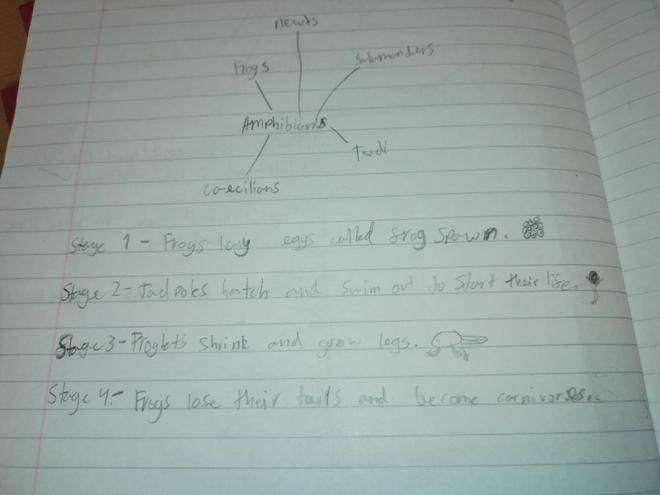 newts
Frogs
Salamanders
Amphibians
Toad
Caecilians
Stage 1 - Frogs lay eggs called frog spawn.
Stage 2 - Tadpoles hatch and swim out to start their life.
Stage 3 - Froglets shrink and grow legs.
Stage 4 - Frogs lose their tails and become carnivores.